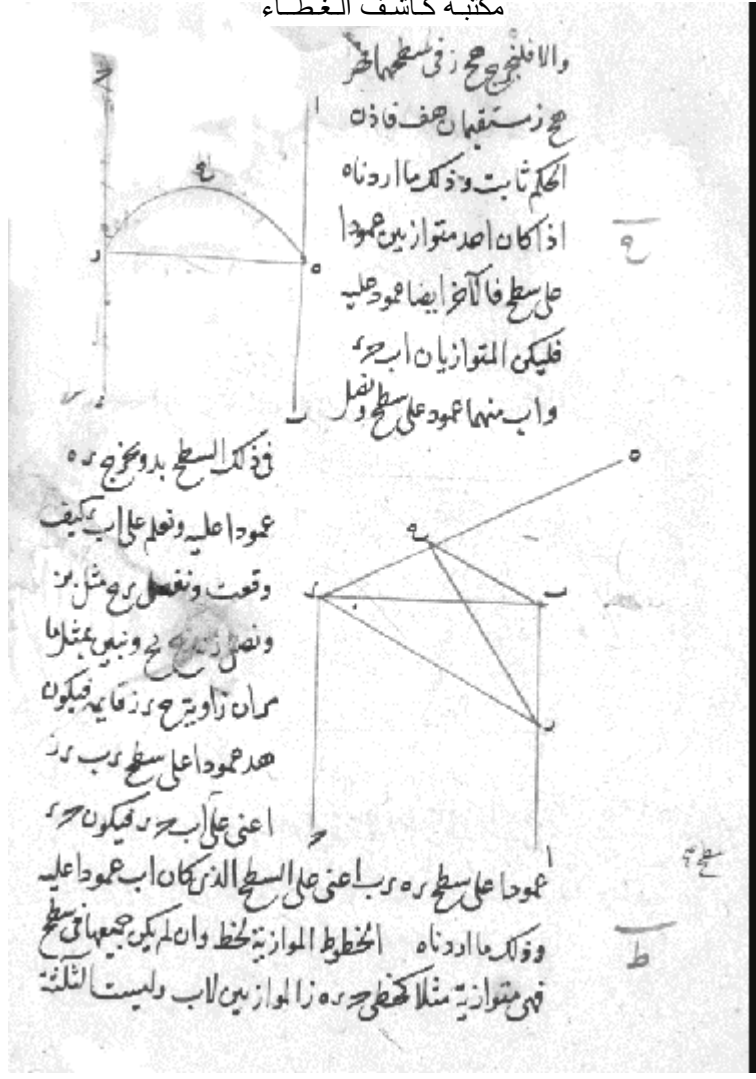 مكتبة كاشف الغطاء
والا فلنخرج هح ز فى سطحهما فهر
هح ز مستقيمان هف فاذن
الحكم ثابت وذلك ما اردناه
ح
اذا كان احد متوازيين عمودا
على سطح فالآخر ايضا عمود عليه
فليكن المتوازيان اب حد
واب منهما عمود على سطح ونصل
فى ذلك السطح بد ونخرج ده
عمودا عليه ونعلم على اب كيف
وقعت ونفصل دح مثل بز
ونصل ونبين بمثل ما
مر ان زاوية ح د ز قايمة فيكون
هد عمودا على سطح دب در
اعنى على اب حد فيكون حد
عمودا على سطح ده دب اعنى على السطح الذى كان اب عمودا عليه
وذلك ما اردناه الخطوط الموازية لخط وان لم يكن جميعها فى سطح
ط
فهى متوازية مثلا كخطى حد ه ز الموازيين لاب وليست الثلثة